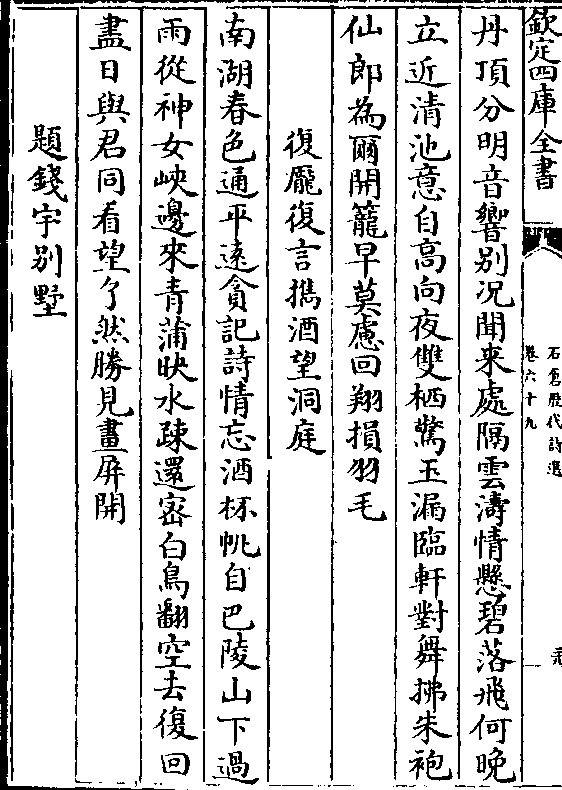 欽定四庫全書
石倉歷代詩選
卷六十九
丹頂分明音響别况聞来處隔雲濤情懸碧落飛何晚
立近清池意自高向夜雙栖驚玉漏臨軒對舞拂朱袍
仙郎為爾開籠早莫慮回翔損羽毛
復龐復言擕酒望洞庭
南湖春色通平遠貪記詩情忘酒杯帆自巴陵山下過
雨從神女峽邊來青蒲映水疎還宻白鳥翻空去復回
盡日與君同看望了然勝見畫屏開
題錢宇别墅